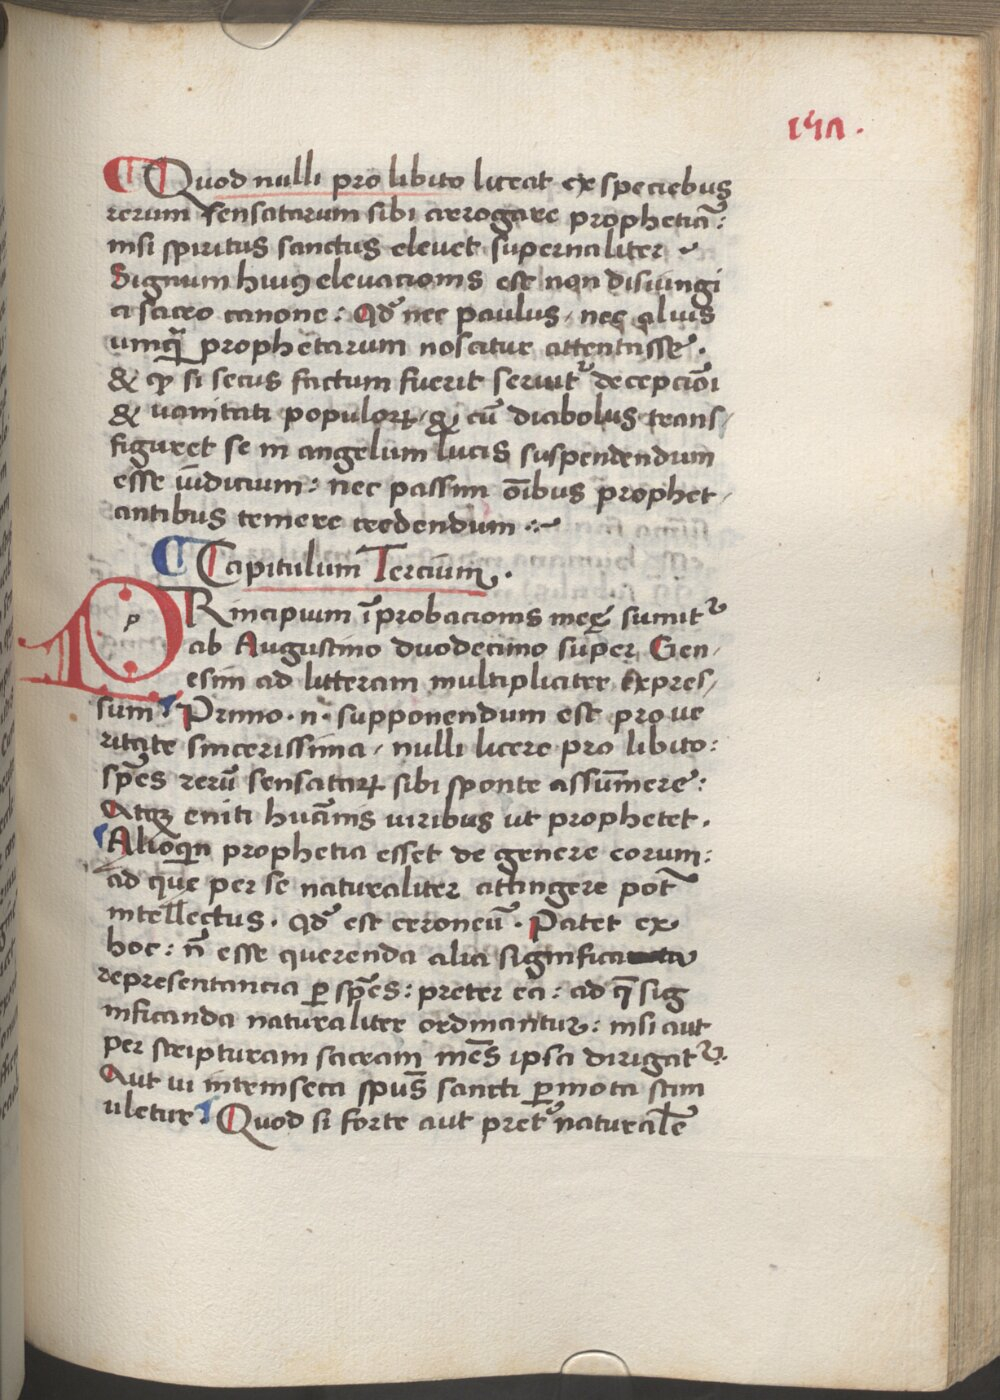 147.
¶ Quod nulli pro libito liceat ex speciebus
rerum sensatarum sibi arrogare prophetiā:
nisi spiritus sanctus elevet supernaliter
Signum huiꝯ elevacionis est non disiungi
a sacro canone: Qđ nec paulus, nec alius
umqᷓ prophetarum noscitur attentasse.
& ꝙ si secus factum fuerit seruit᷑ decepciōi
& uanitati populoꝝ, & cū diabolus trans,
figuret se in angelum lucis suspendendum
esse iūdicium: nec passim ōibus prophet,
antibus temere credendum
¶ Capitulum Tercium.
PRincipium īprobacionis meę sumit᷑
ab Augustino duodecimo super Gen,
esim ad litteram multipliciter expres,
sum ¶ Primo .n. supponendum est pro ue
ritate sincerissima, nulli licere pro libito:
spēs rerū sensataꝝ sibi sponte assūmere:
Atqꝫ eniti huānis uiribus ut prophetet.
¶ Alioqin prophetia esset de genere eorum:
ad que per se naturaliter attingere pot̄
intellectus. Qđ est erroneū. Patet ex
hoc: n̄ esse querenda alia significa
representancia ꝑ spēs: preter ea: ad q̄ sig
nificanda naturaliter ordinantur: nisi aut
per scripturam sacram mēs ipsa dirigat᷑.
Aut ui intrinseca spūs sancti ꝑmota stim
uletur ¶ Quod si forte aut pret᷑ naturale̅